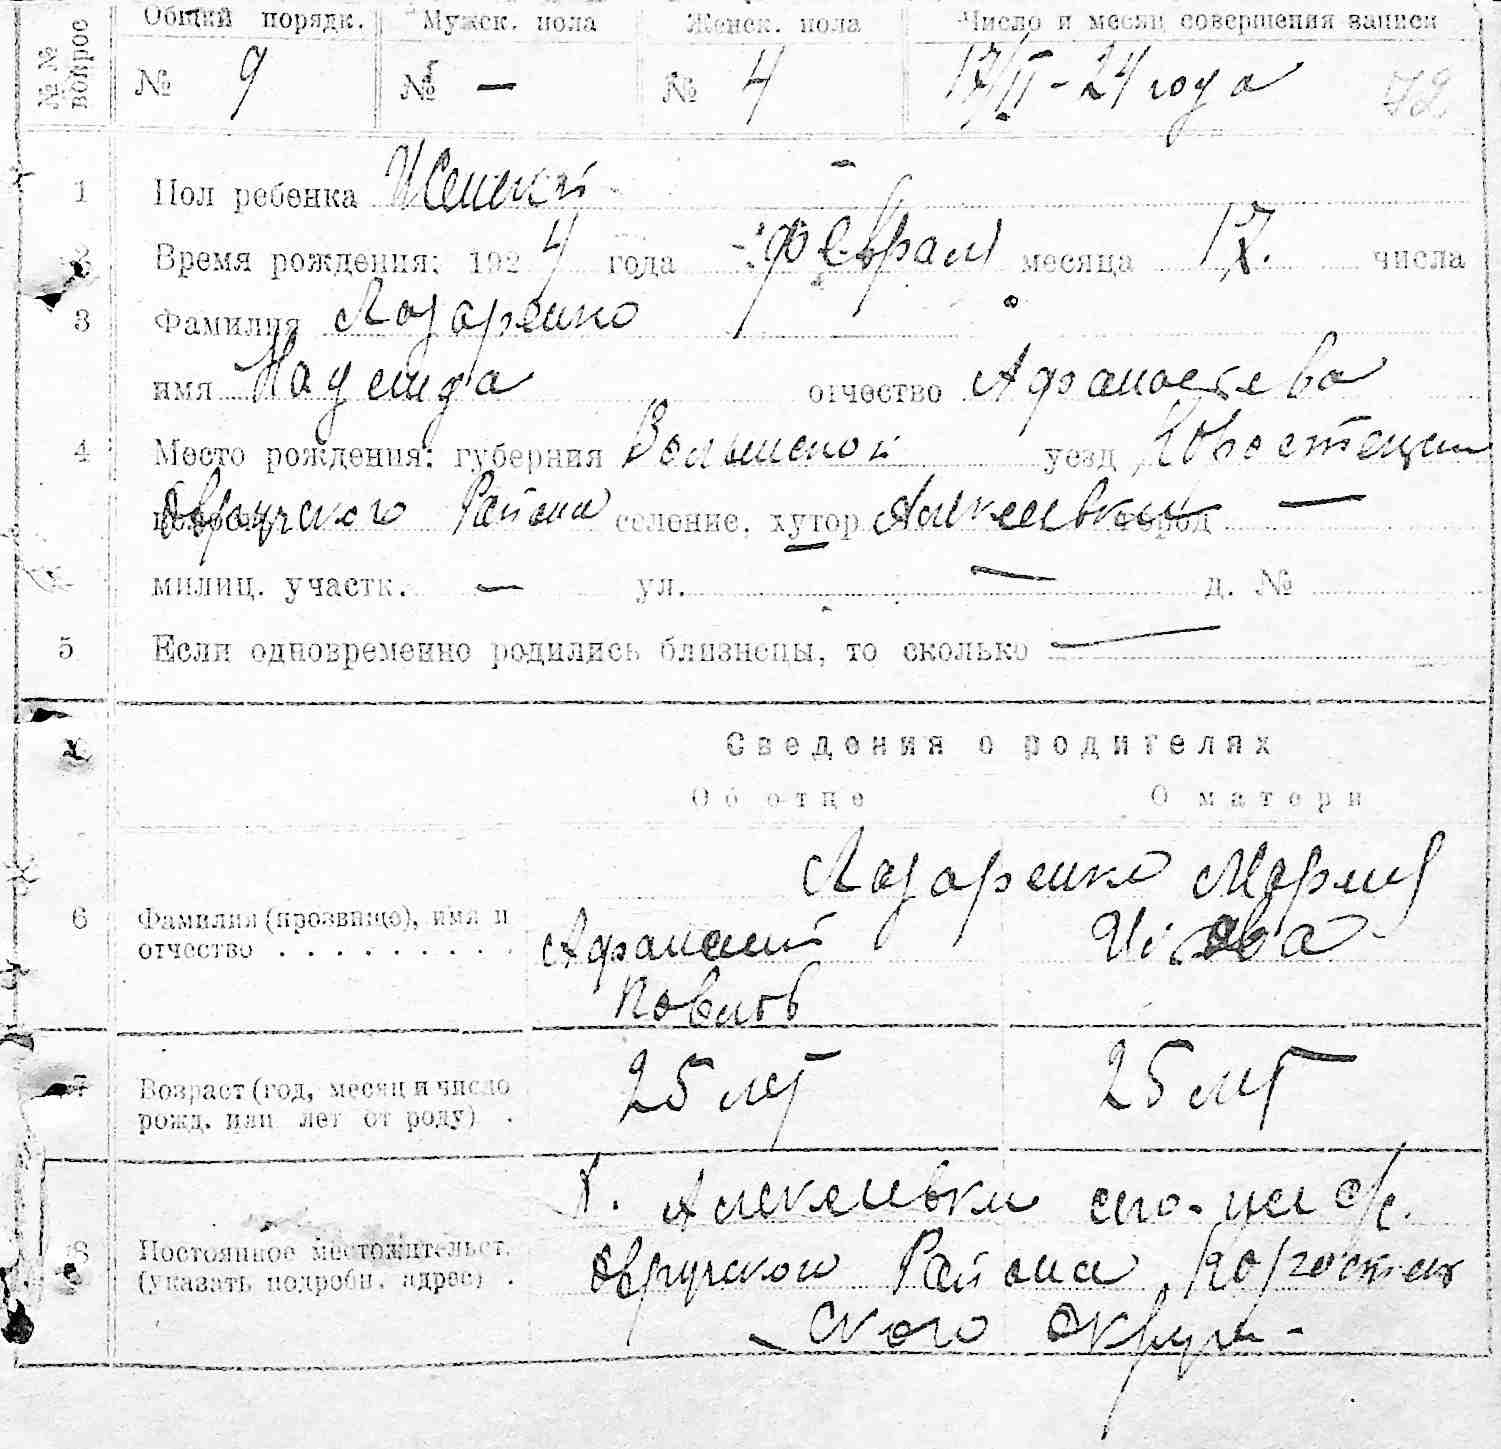 № № вопрос
Общий порядк. Мужск. пола Женск. пола Число и месяц совершения записи
№ 9 № — № 4 17/II - 24 года 72
1 Пол ребенка Женский
2 Время рождения: 1924 года феврал месяца 17. числа
3 Фамилия Лазаренко
имя Надежда отчество Афанасьева
4 Место рождения: губерния Волынской уезд Коростенски
Овручского Района селение, хутор Алексеевка город —
милиц. участк. — ул. — д. №
5 Если одновременно родились близнецы, то сколько —
Сведения о родителях
Об отце О матери
Лазаренко Мария
6 Фамилия (прозвище), имя и
отчество . . . . . . . . . Афанасий
Павлов
7 Возраст (год, месяц и число 25 лет 25 лет
рожд. или лет от роду) .
х. Алексеевка с/с.
8 Постоянное местожительст. Овручского Района Коростен
(указать подробн. адрес) .
ского округа -